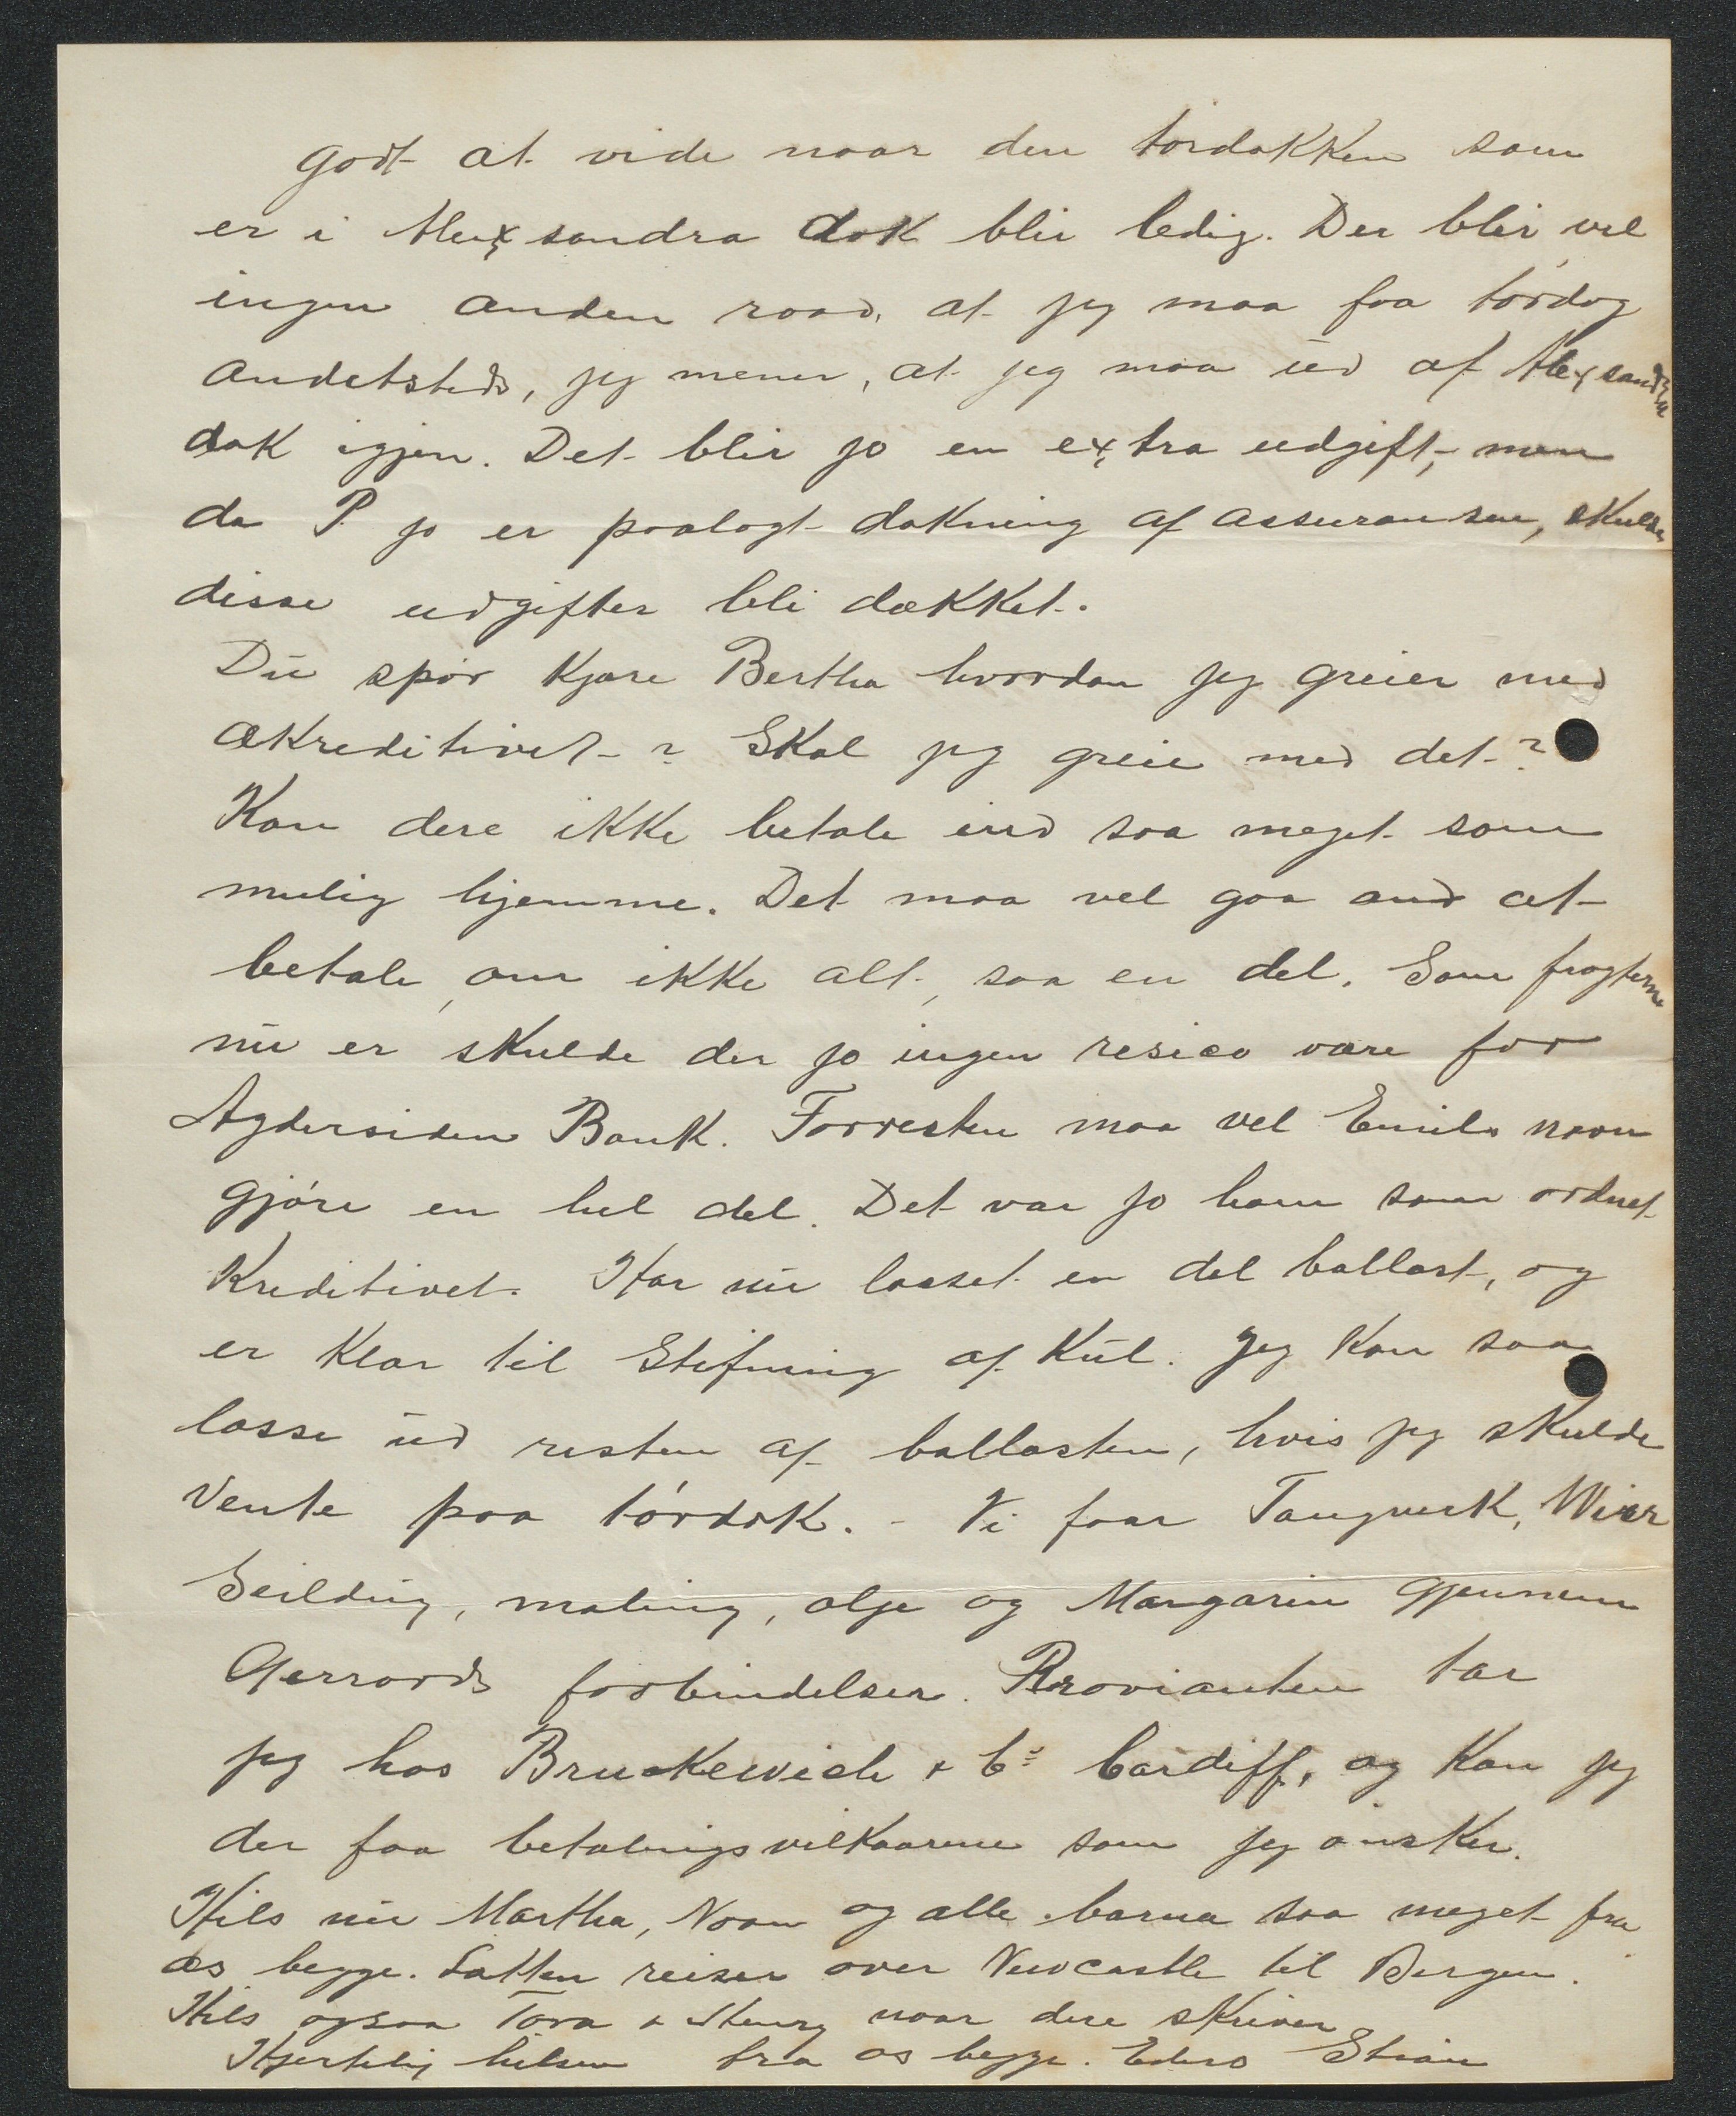 godt at vide naar den tördokken som
er i Alexsandra dok blir ledig. Der blir vel
ingen anden raad, at jeg maa faa tördog
andetsteds, jeg mener, at jeg maa ud af Alexsandra
dok igjen. Det blir jo en extra udgift, men
da P. jo er paalagt dokning af assuransen, skulde
disse udgifter bli dækket.
Du spör kjære Bertha hvordan jeg greier med
akreditivet? Skal jeg greie med det?
Kan dere ikke betale ind saa meget som
mulig hjemme. Det maa vel gaa and at
betale, om ikke alt, saa en del. Som fragterne
nu er skulde der jo ingen resico være for
Agdersiden Bank. Forresten maa vel Emils navn
gjöre en hel del. Det var jo ham som ordnet
Kreditivet. Har nu losset en del ballast, og
er klar til Stifning af Kul. Jeg kan saa
losse ud resten af ballasten, hvis jeg skulde
vente paa tördok. - Vi faar Taugverk, Wirer
Seildug, maling, olje og Margarin gjennem
Gerrards forbindelser. Provianten tar
jeg hos Bruckewich & Co Cardiff, og kan jeg
der faa betalingsvilkaarene som jeg önsker.
Hils nu Martha, Noan og alle barna saa meget fra
os begge. Satten reiser over Newcastle til Bergen.
Hils ogsaa Tora & Henry naar dere skriver
Hjertelig hilsen fra os begge. Eders Stian